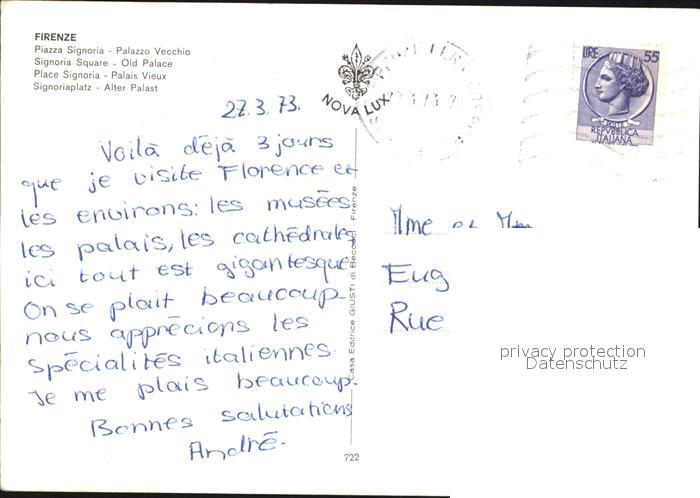 FIRENZE
Piazza Signoria - Palazzo Vecchio
Signoria Square - Old Palace
Place Signoria - Palais Vieux
Signoriaplatz - Alter Palast
NOVA LUX
LIRE 55
POSTE
REPVBBLICA
ITALIANA
27.3.73.
Voilà déjà 3 jours
que je visite Florence et
les environs: les musées
les palais, les cathédrales
ici tout est gigantesque
On se plait beaucoup
nous apprécions les
spécialités italiennes.
Je me plais beaucoup.
Bonnes salutations
André.
Casa Editrice GIUSTI di Becocci - Firenze
722
Mme
Eug
Rue
privacy protection
Datenschutz